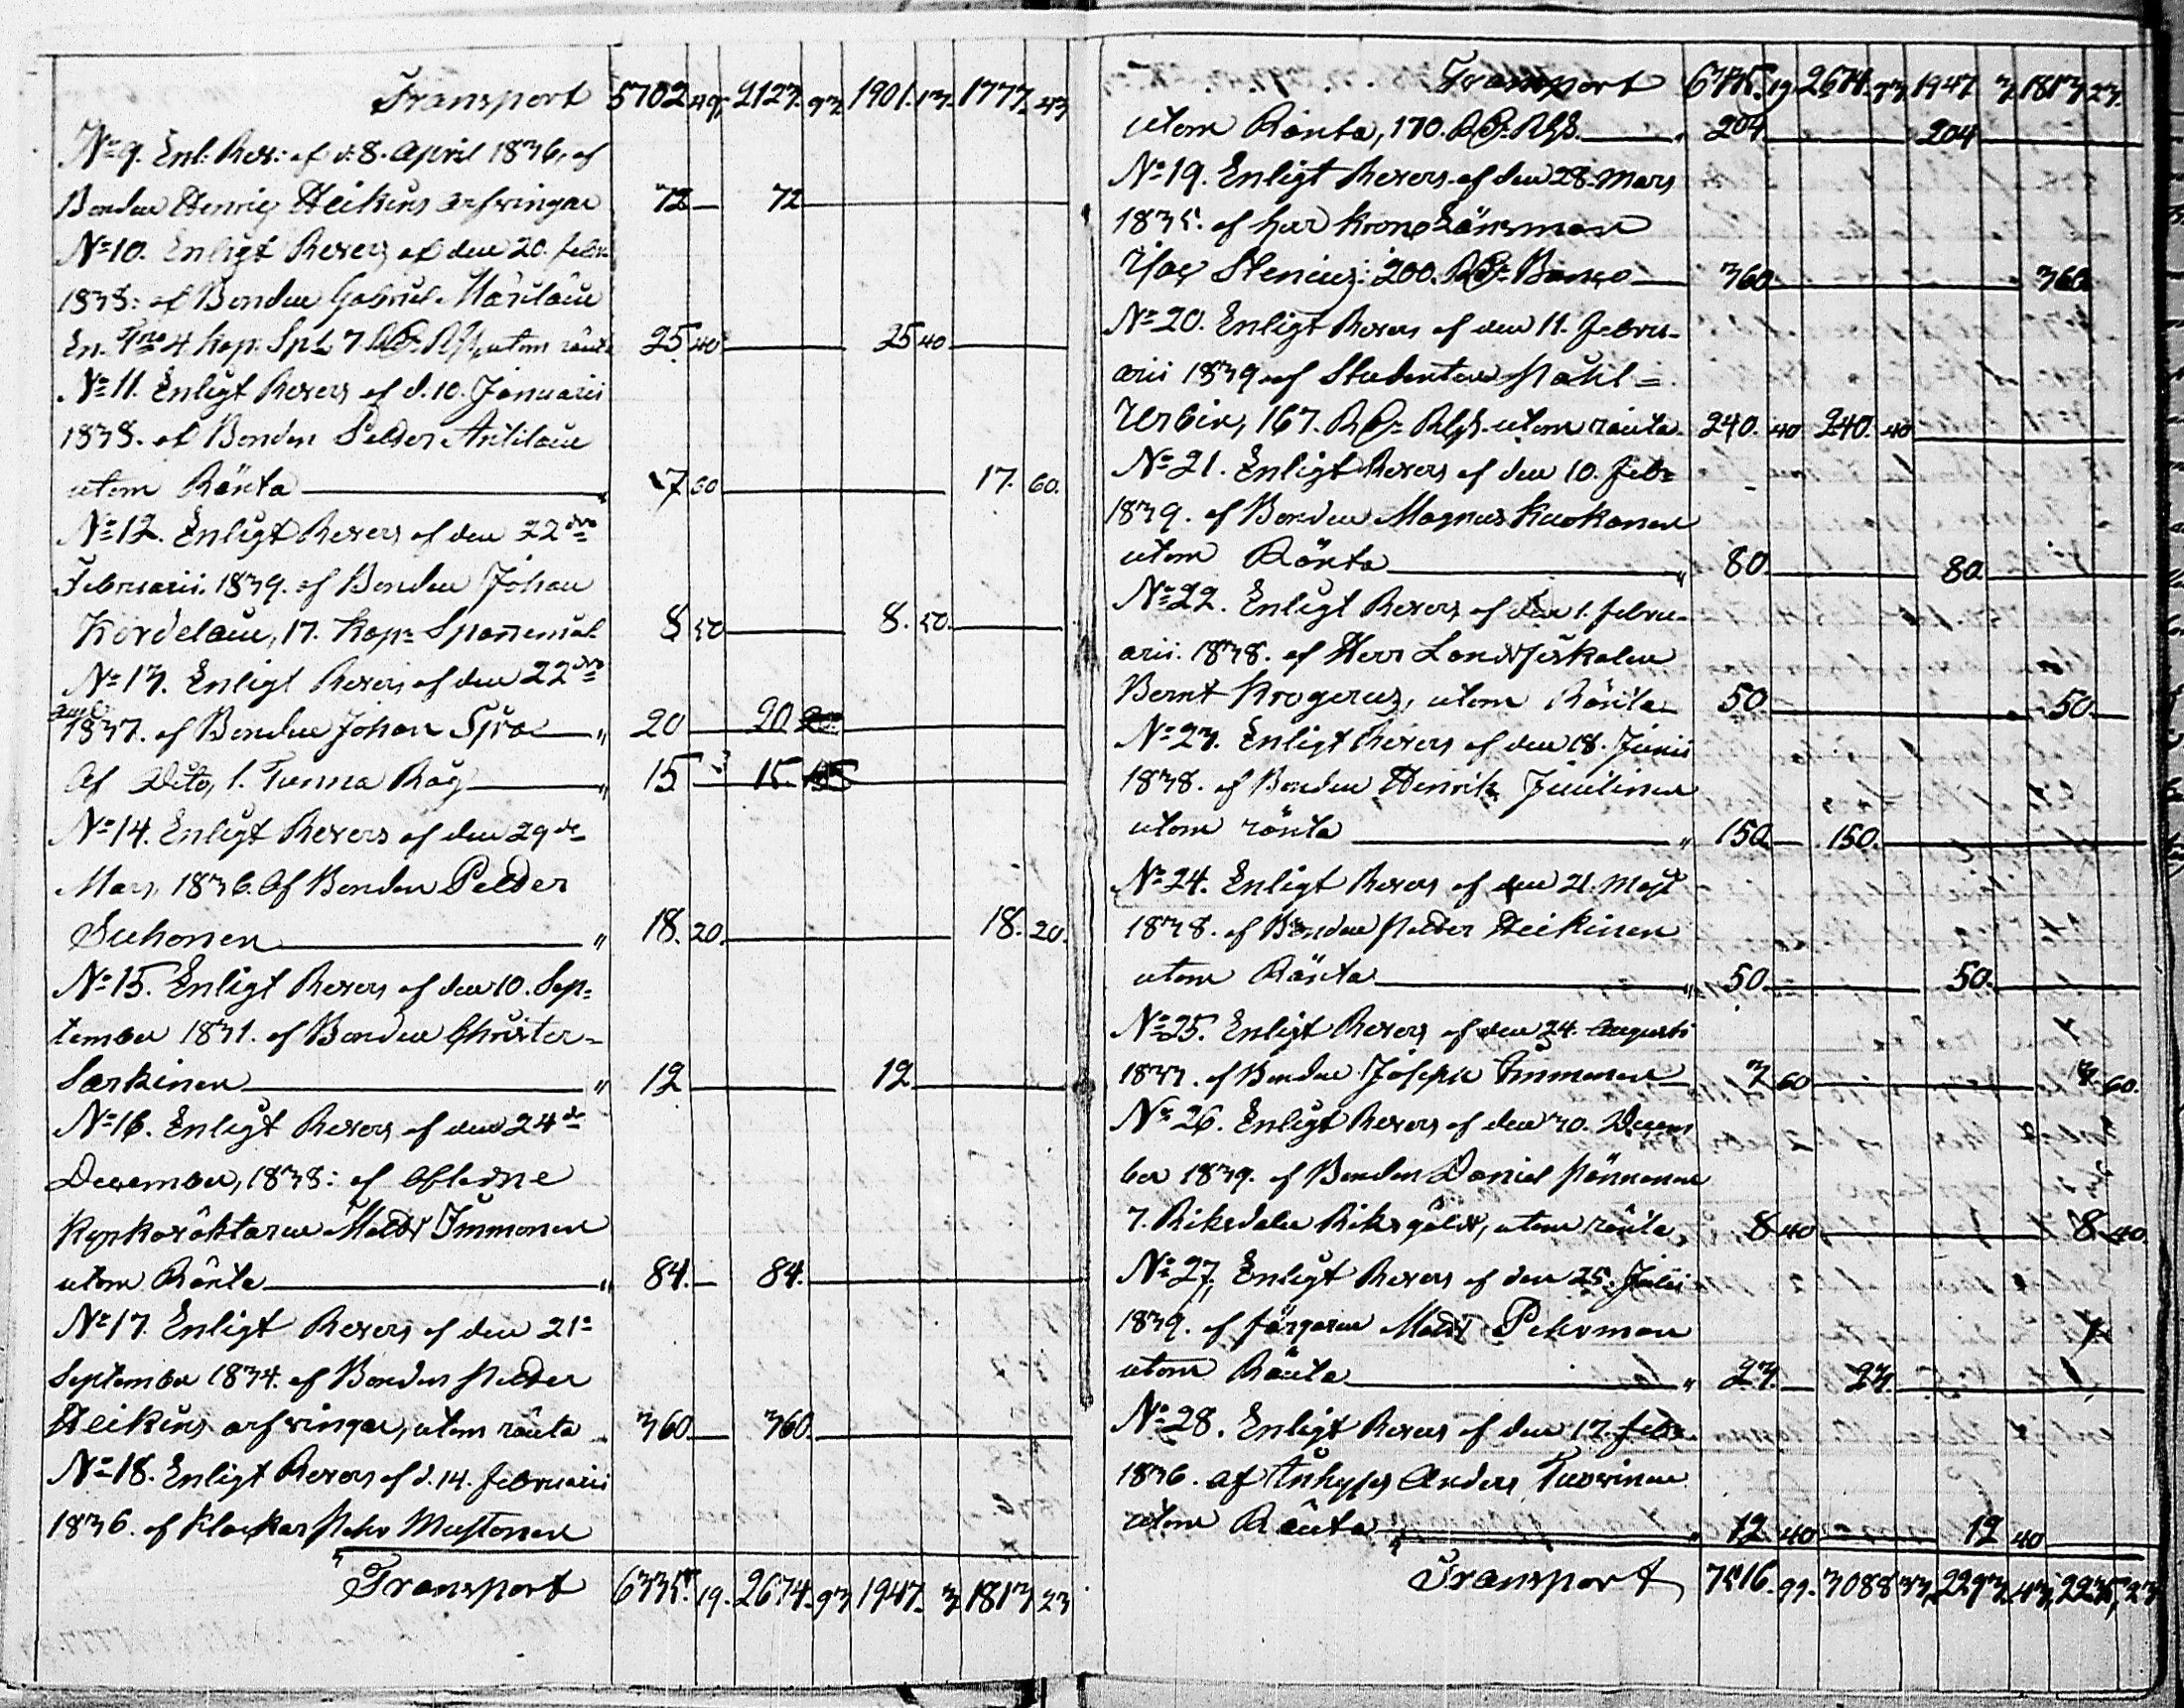 Transport 5702 49. 2123. 93 1901. 13. 1777. 43
No 9. Enl: Rev: af d: 8. April 1836, af
Bonden Henric Heikins arfvingar 72 — 72
No 10. Enligt Revers af den 20. Febr.
1838: af Bonden Gabriel
En. 4 Kap. Sp. 7 Rd. Rgs, utom ränta 25 40 25 40
No 11. Enligt Revers af d. 10. Januarii
1838. af Bonden Petter Antilain
utom Ränta 17. 60.
No 12. Enligt Revers af den 22dra
Februarii. 1839. af Bonden Johan
Kordelain, 17. Kap: Spannemål 8 50 8. 50.
No 13. Enligt Revers af den 22dra
1837. af Bonden Johan 20 20
Af Dito, 1. Tunna Råg 15 15
No 14. Enligt Revers af den 29de
Mars, 1836. Af Bonden Petter
Suhonen " 18. 20. 18. 20.
No 15. Enligt Revers af den 10. Sep-
tember 1831. af Bonden Christer
Särkinen " 12 12
No 16. Enligt Revers af den 24de
December, 1838: af Aflidne
Matts Immonen
utom Ränta " 84. — 84.
No 17. Enligt Revers af den 21:
September 1834. af Bonden Petter
Heikins arfvingar, utom ränta 360. — 360.
No 18. Enligt Revers af d. 14. Februarii
1836. af Klockar Mustonen
Transport 6335. 19. 2674. 93 1947. 3 1813 23
Transport 6335. 19 2674. 93 1947 3. 1813 23.
utom Ränta, 170. Rd. Rgs. " 204. 204
No 19. Enligt Revers af den 28. Mars
1835. af herr Krono Länsman
Stenius: 200. Rd: Banco 360. 360.
No 20. Enligt Revers af den 11. Febru-
arii 1839 af Studenten
167. Rd: Rgs. utom ränta 240. 40 240. 40
No 21. Enligt Revers af den 10. Feb:
1839. af Bonden Magnus Kuokanen
utom Ränta " 80. 80.
No 22. Enligt Revers af den 1. Febru-
arii. 1838. af Herr Landtfiskalen
Bernt Krogerus, utom Ränta 50. 50.
No 23. Enligt Revers af den 18. Junii
1838. af Bonden Henrik
utom ränta " 150. — 150.
No 24. Enligt Revers af den 21. Maji
1838. af Bonden Petter Heikinen
utom Ränta " 50. 50.
No 25. Enligt Revers af den 24. Augusti
1833. af Bonden Joseph Immonen 3 60 3. 60.
No 26. Enligt Revers af den 30. Decem
ber 1839. af Bonden Daniel
7. Riksdaler Riksgäld, utom ränta, 8 40 8. 40.
No 27. Enligt Revers af den 25. Julii
1839. af färgaren Matts
utom Ränta " 23. — 23.
No 28. Enligt Revers af den 17. Feb:
1836. af Inhyses Anders
utom Ränta " 12 40 12 40
Transport 7516. 99. 3088 33, 2293. 43, 2235, 23